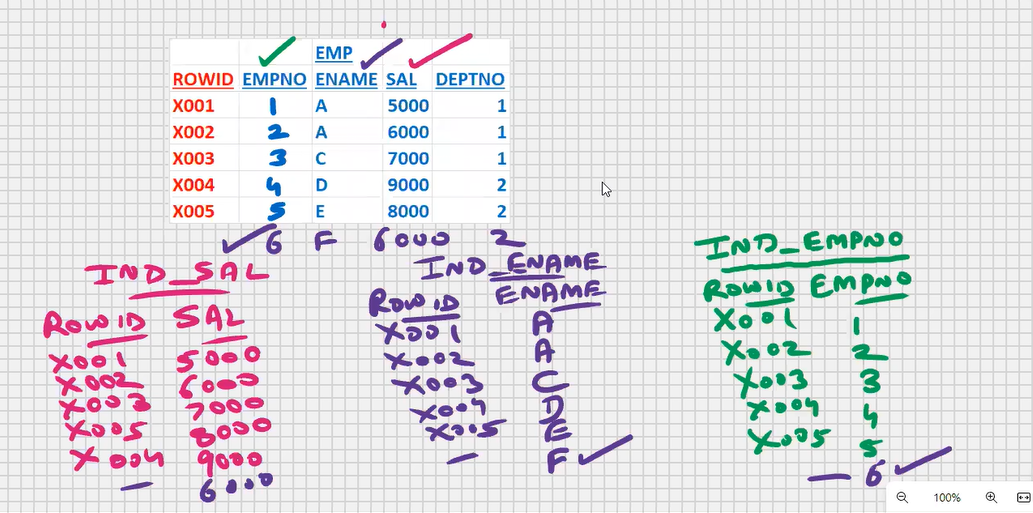 EMP
ROWID EMPNO ENAME SAL DEPTNO
X001 1 A 5000 1
X002 2 A 6000 1
X003 3 C 7000 1
X004 4 D 9000 2
X005 5 E 8000 2
6 F 6000 2
IND_SAL
ROWID SAL
X001 5000
X002 6000
X003 7000
X005 8000
X004 9000
— 6000
IND_ENAME
ROWID ENAME
X001 A
X002 A
X003 C
X004 D
X005 E
— F
IND_EMPNO
ROWID EMPNO
X001 1
X002 2
X003 3
X004 4
X005 5
— 6
100%